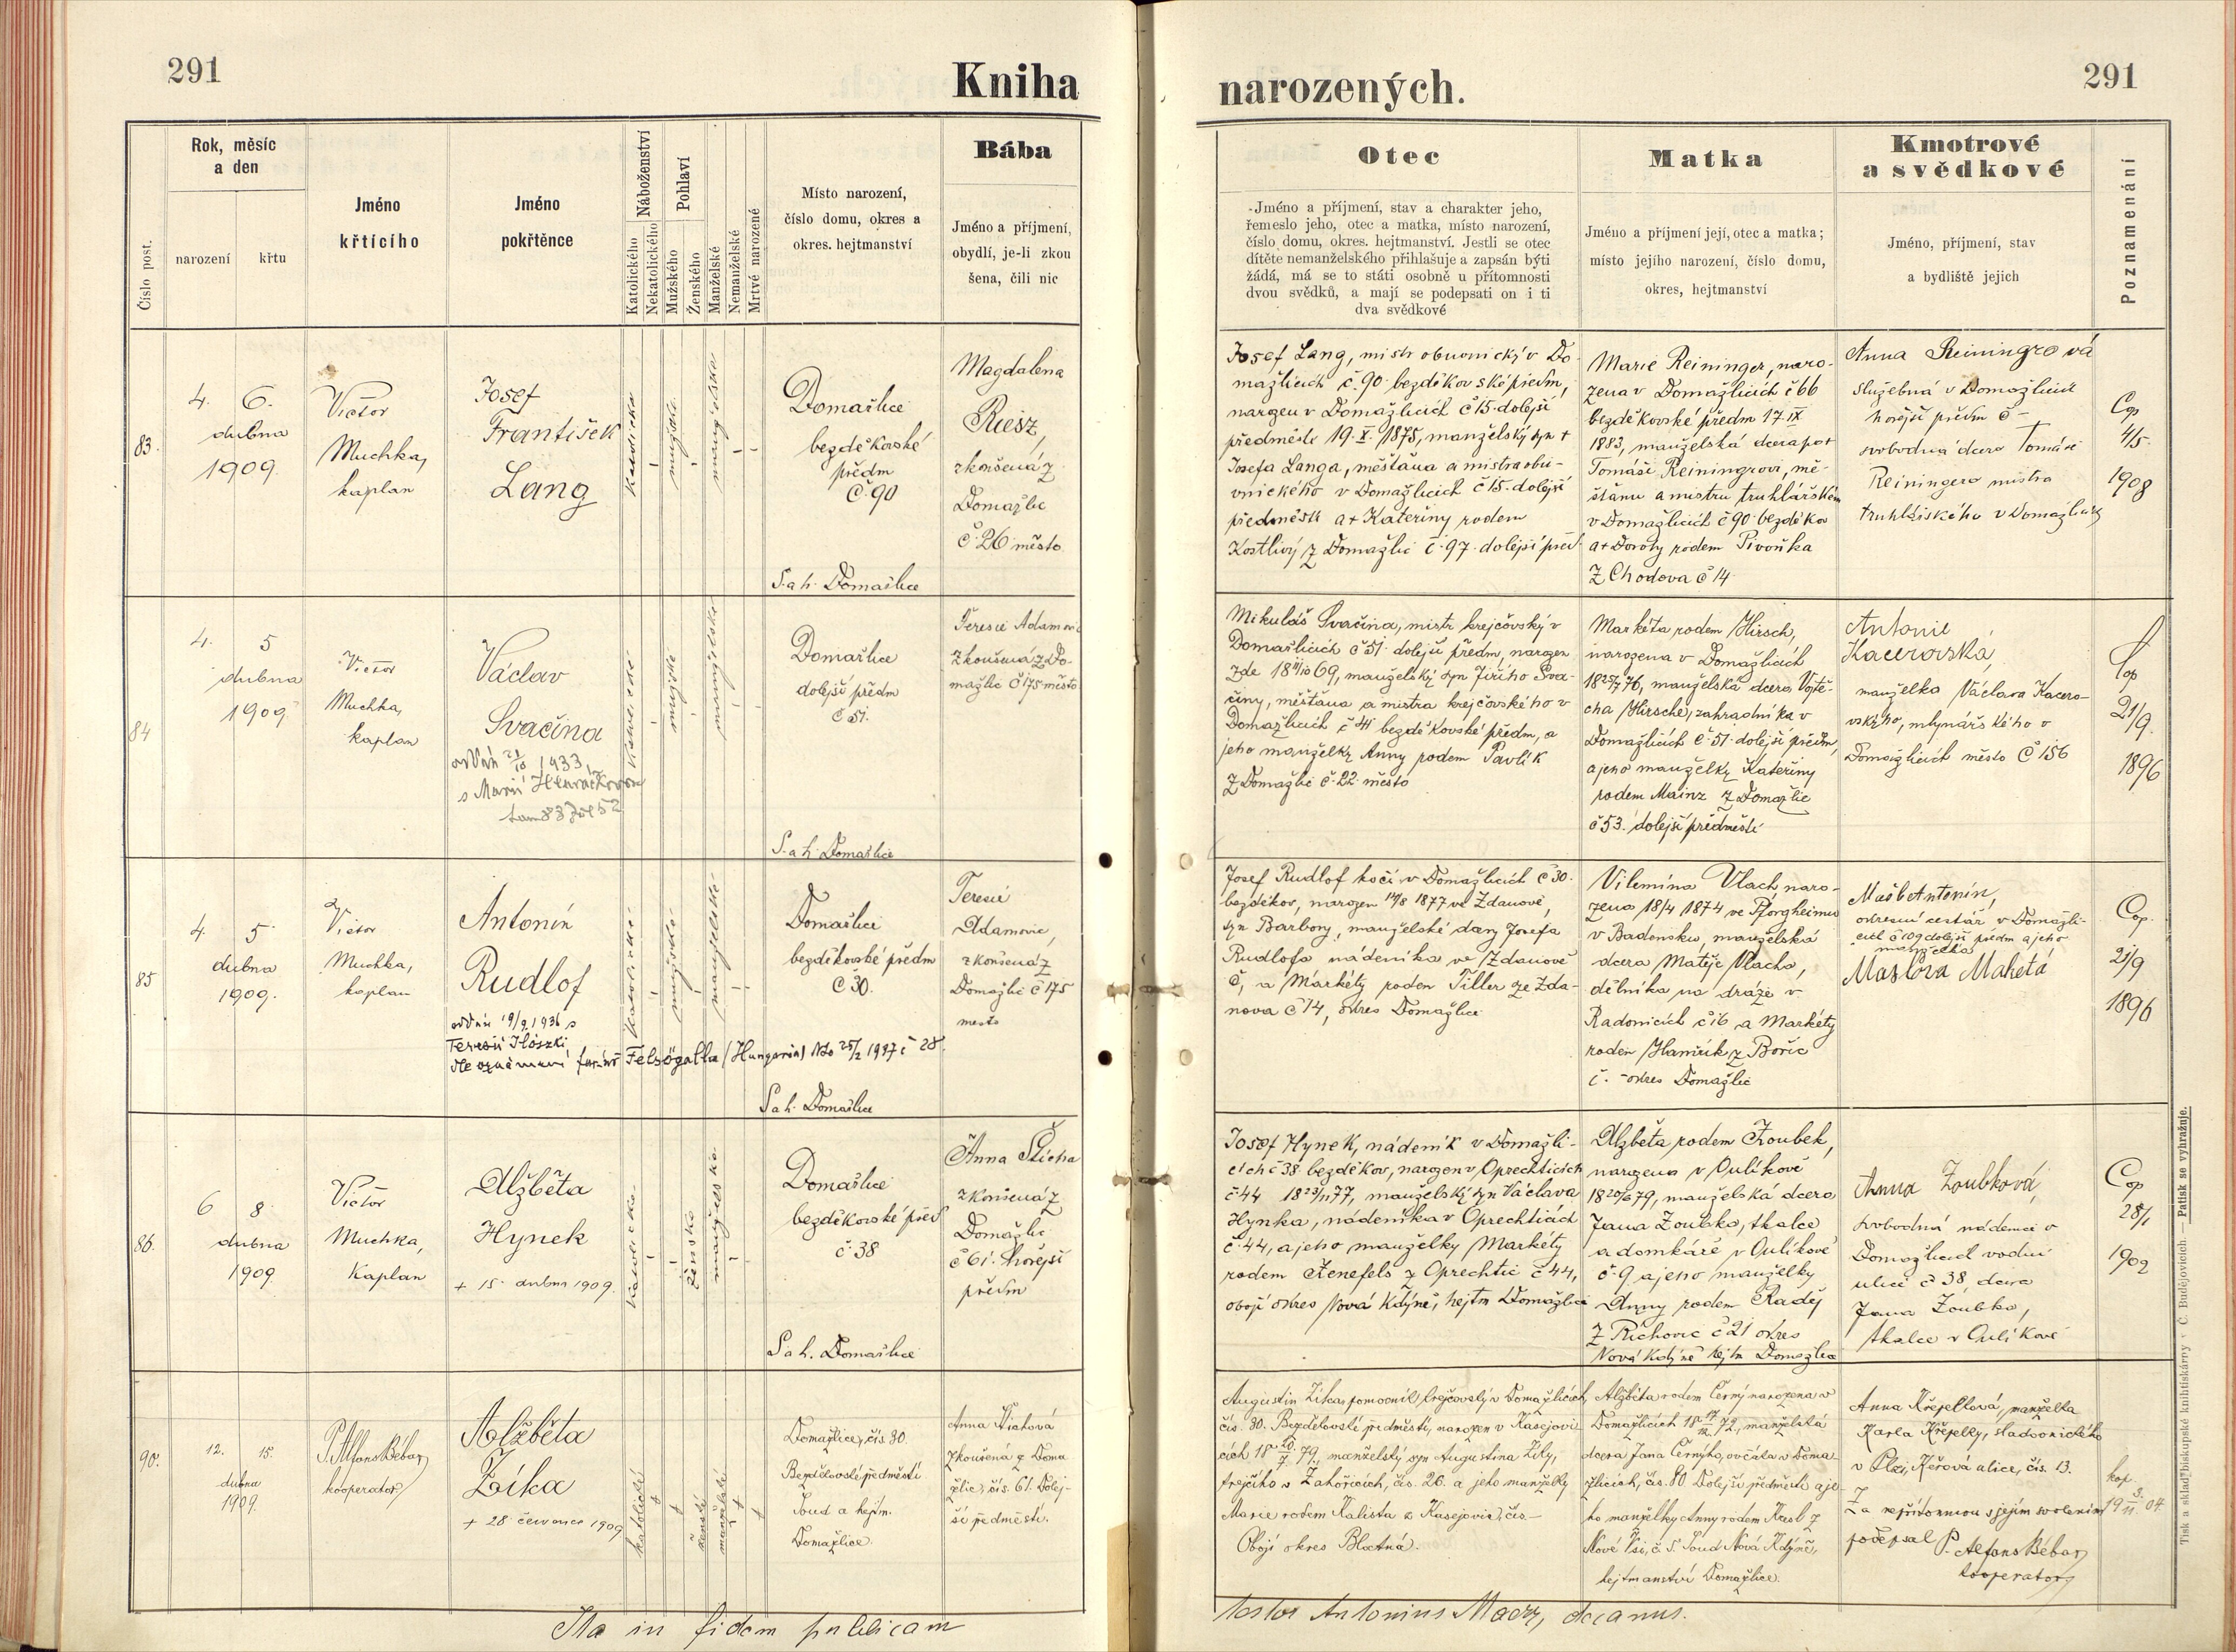 291
Kniha
narozených.
291
Číslo post.
Rok, měsíc
a den
narození
křtu
Jméno
křtícího
Jméno
pokřtěnce
Náboženství
Katolického
Nekatolického
Pohlaví
Mužského
Ženského
Manželské
Nemanželské
Mrtvě narozené
Místo narození,
číslo domu, okres a
okres. hejtmanství
Bába
Jméno a příjmení,
obydlí, je-li zkou
šena, čili nic
Otec
Jméno a příjmení, stav a charakter jeho,
řemeslo jeho, otec a matka, místo narození,
číslo domu, okres. hejtmanství. Jestli se otec
dítěte nemanželského přihlašuje a zapsán býti
žádá, má se to státi osobně u přítomnosti
dvou svědků, a mají se podepsati on i ti
dva svědkové
Matka
Jméno a příjmení její, otec a matka;
místo jejího narození, číslo domu,
okres, hejtmanství
Kmotrové
a svědkové
Jméno, příjmení, stav
a bydliště jejich
Poznamenání
83.
4. 6.
dubna
1909.
Victor
Muchka,
kaplan
Josef
František
Lang
katolické
mužské
manželské
Domažlice
bezděkovské
předm
č. 90
S. a h. Domažlice
Magdalena
Riesz,
zkoušená z
Domažlic
č. 26 město
Josef Lang, mistr obuvnický v Do-
mažlicích č. 90 bezděkovské předm,
narozen v Domažlicích č 15. dolejší
předměstí 19. X. 1875, manželský syn +
Josefa Langa, měšťana a mistra obu-
vnického v Domažlicích č 15. dolejší
předměstí a + Kateřiny rodem
Kostlivý z Domažlic č. 97. dolejší před
Marie Reininger, naro-
zena v Domažlicích č 66
bezděkovské předm 17. IX
1883, manželská dcera po +
Tomáši Reiningrovi, mě-
šťanu a mistru truhlářském
v Domažlicích č 90 bezděkov
a + Doroty rodem Pivoňka
z Chodova č 14
Anna Reiningrová
služebná v Domažlicích
hořejší předm č –
svobodná dcera Tomáše
Reiningera mistra
truhlářského v Domažlicích
Cop
4/5.
1908
84
4. 5
dubna
1909
Victor
Muchka,
kaplan
Václav
Svačina
oddán 21/10 1933,
s Marií Hlaváčkovou
katolické
mužské
manželské
Domažlice
dolejší předm
č 51.
S. a h. Domažlice
Teresie Adamovic
zkoušená z Do-
mažlic č 175 město
Mikuláš Svačina, mistr krejčovský v
Domažlicích č 51. dolejší předm, narozen
zde 18 11/10 69, manželský syn Jiřího Sva-
činy, měšťana a mistra krejčovského v
Domažlicích č 41 bezděkovské předm, a
jeho manželky Anny rodem Pavlík
z Domažlic č. 22 město
Markéta rodem Hirsch,
narozena v Domažlicích
18 25/7 76, manželská dcera Vojtě-
cha Hirsche, zahradníka v
Domažlicích č. 51. dolejší předm,
a jeho manželky Kateřiny
rodem Mainz z Domažlic
č 53. dolejší předměstí
Antonie
Kacerovská,
manželka Václava Kacero-
vského, mlynářského v
Domažlicích město č 156
Cop
21/9.
1896
85
4. 5
dubna
1909.
Victor
Muchka,
kaplan
Antonín
Rudlof
oddán 19/9. 1936 s
Terezií Ilószki
dle oznámení far. úř. Felsögalla (Hungaria) Nro 25/2 1937 č 28.
katolické
mužské
manželské
Domažlice
bezděkovské předm
č 30.
S. a h. Domažlice
Teresie
Adamovic,
zkoušená z
Domažlic č 175
město
Josef Rudlof kočí v Domažlicích č 30.
bezděkov, narozen 14/8 1877 ve Ždanově,
syn Barbory, manželské dcery Josefa
Rudlofa nádeníka ve Ždanově
č, a Markéty rodem Tiller ze Žda-
nova č 14, okres Domažlice
Vilemína Vlach, naro-
zena 18/4 1874 ve Pforgheimu
v Badensku, manželská
dcera Matěje Vlacha,
dělníka na dráze v
Radonicích č 16 a Markéty
rodem Hamrík z Bořic
č. – okres Domažlice
Mašb Antonín,
okresní cestář v Domažli-
cích č 109 dolejší předm a jeho
manželka
Mašbova Maketá
Cop.
21/9
1896
86.
6 8
dubna
1909
Victor
Muchka,
Kaplan
Alžběta
Hynek
+ 15. dubna 1909.
katolické
ženské
manželské
Domažlice
bezděkovské před
č. 38
S a h. Domažlice
Anna Šticha
zkoušená z
Domažlic
č 61. hořejší
předm
Josef Hynek, nádeník v Domažli-
cích č 38 bezděkov, narozen v Oprechticích
č 44 18 23/11 77, manželský syn Václava
Hynka, nádeníka v Oprechticích
č. 44, a jeho manželky Markéty
rodem Ženefels z Oprechtic č 44,
obojí okres Nová Kdýně, hejtm Domažlice
Alžběta rodem Zoubek,
narozena v Oulíkově
18 20/6 79, manželská dcera
Jana Zoubka, tkalce
a domkáře v Oulíkově
č. 9 a jeho manželky
Anny rodem Raděj
z Přichovic č 21 okres
Nová Kdýně hejtm Domažlice
Anna Zoubková,
svobodná nádenice v
Domažlicích vodní
ulice č 38, dcera
Jana Zoubka,
tkalce v Oulíkově
Cop
28/1
1902
90.
12. 15.
dubna
1909.
P. Alfons Bébar,
kooperator
Alžběta
Zíka
+ 28 července 1909
katolické
ženské
manželské
Domažlice, čís. 30.
Bezděkovské předměstí.
Soud a hejtm.
Domažlice.
Anna
zkoušená z Doma
žlic, čís. 61. Dolej-
ší předměstí.
Augustin Zíka, pomocník krejčovský v Domažlicích,
čís. 30. Bezděkovské předměstí, narozen v Kasejovi
cích 18 20/7 79, manželský syn Augustina Zíky,
krejčího v Zahořicích, čís. 26. a jeho manželky
Marie rodem Kalista z Kasejovic, čís –
Obojí okres Blatná.
Alžběta rodem Černý narozena v
Domažlicích 18 17/12 72, manželská
dcera Jana Černýho, ovčáka v Doma-
žlicích, čís. 80 Dolejší předměstí a je
ho manželky Anny rodem Kresl z
Nové Vsi, č. 5. Soud Nová Kdýně,
hejtmanství Domažlice.
Anna Křepelková, manželka
Karla Křepelky, sladovnického
v Plzni, Kéřová ulice, čís. 13.
Za nepřítomnou s jejím svolením
podepsal P. Alfons Bébar,
kooperator
kop.
19 3/11. 04
Ita in fidem publicam
testor Antonius Macz, decanus.
Tisk a sklad biskupské knihtiskárny v Č. Budějovicích. — Patisk se vyhražuje.